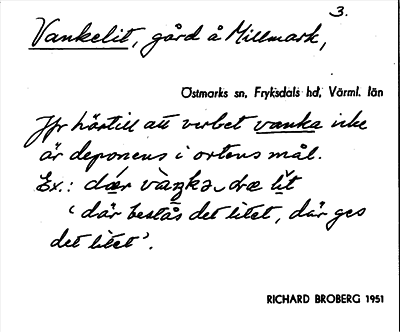 3.
Vankelit, gård å Millmark,
Östmarks sn, Fryksdals hd, Värml. län
Jfr härtill att verbet vanka icke
är deponens i ortens mål.
Ex.: dǽr vàŋkə dræ lit
‘där bestås det litet, där ges
det litet’.
RICHARD BROBERG 1951